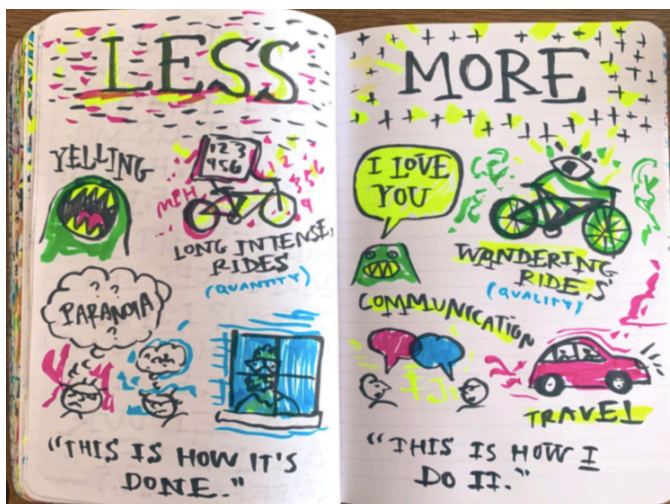 LESS
YELLING
1 2 3
4 5 6
MPH
LONG INTENSE
RIDES
(QUANTITY)
PARANOIA
"THIS IS HOW IT'S
DONE."
MORE
I LOVE
YOU
WANDERING
RIDES
(QUALITY)
COMMUNICATION
TRAVEL
"THIS IS HOW I
DO IT."